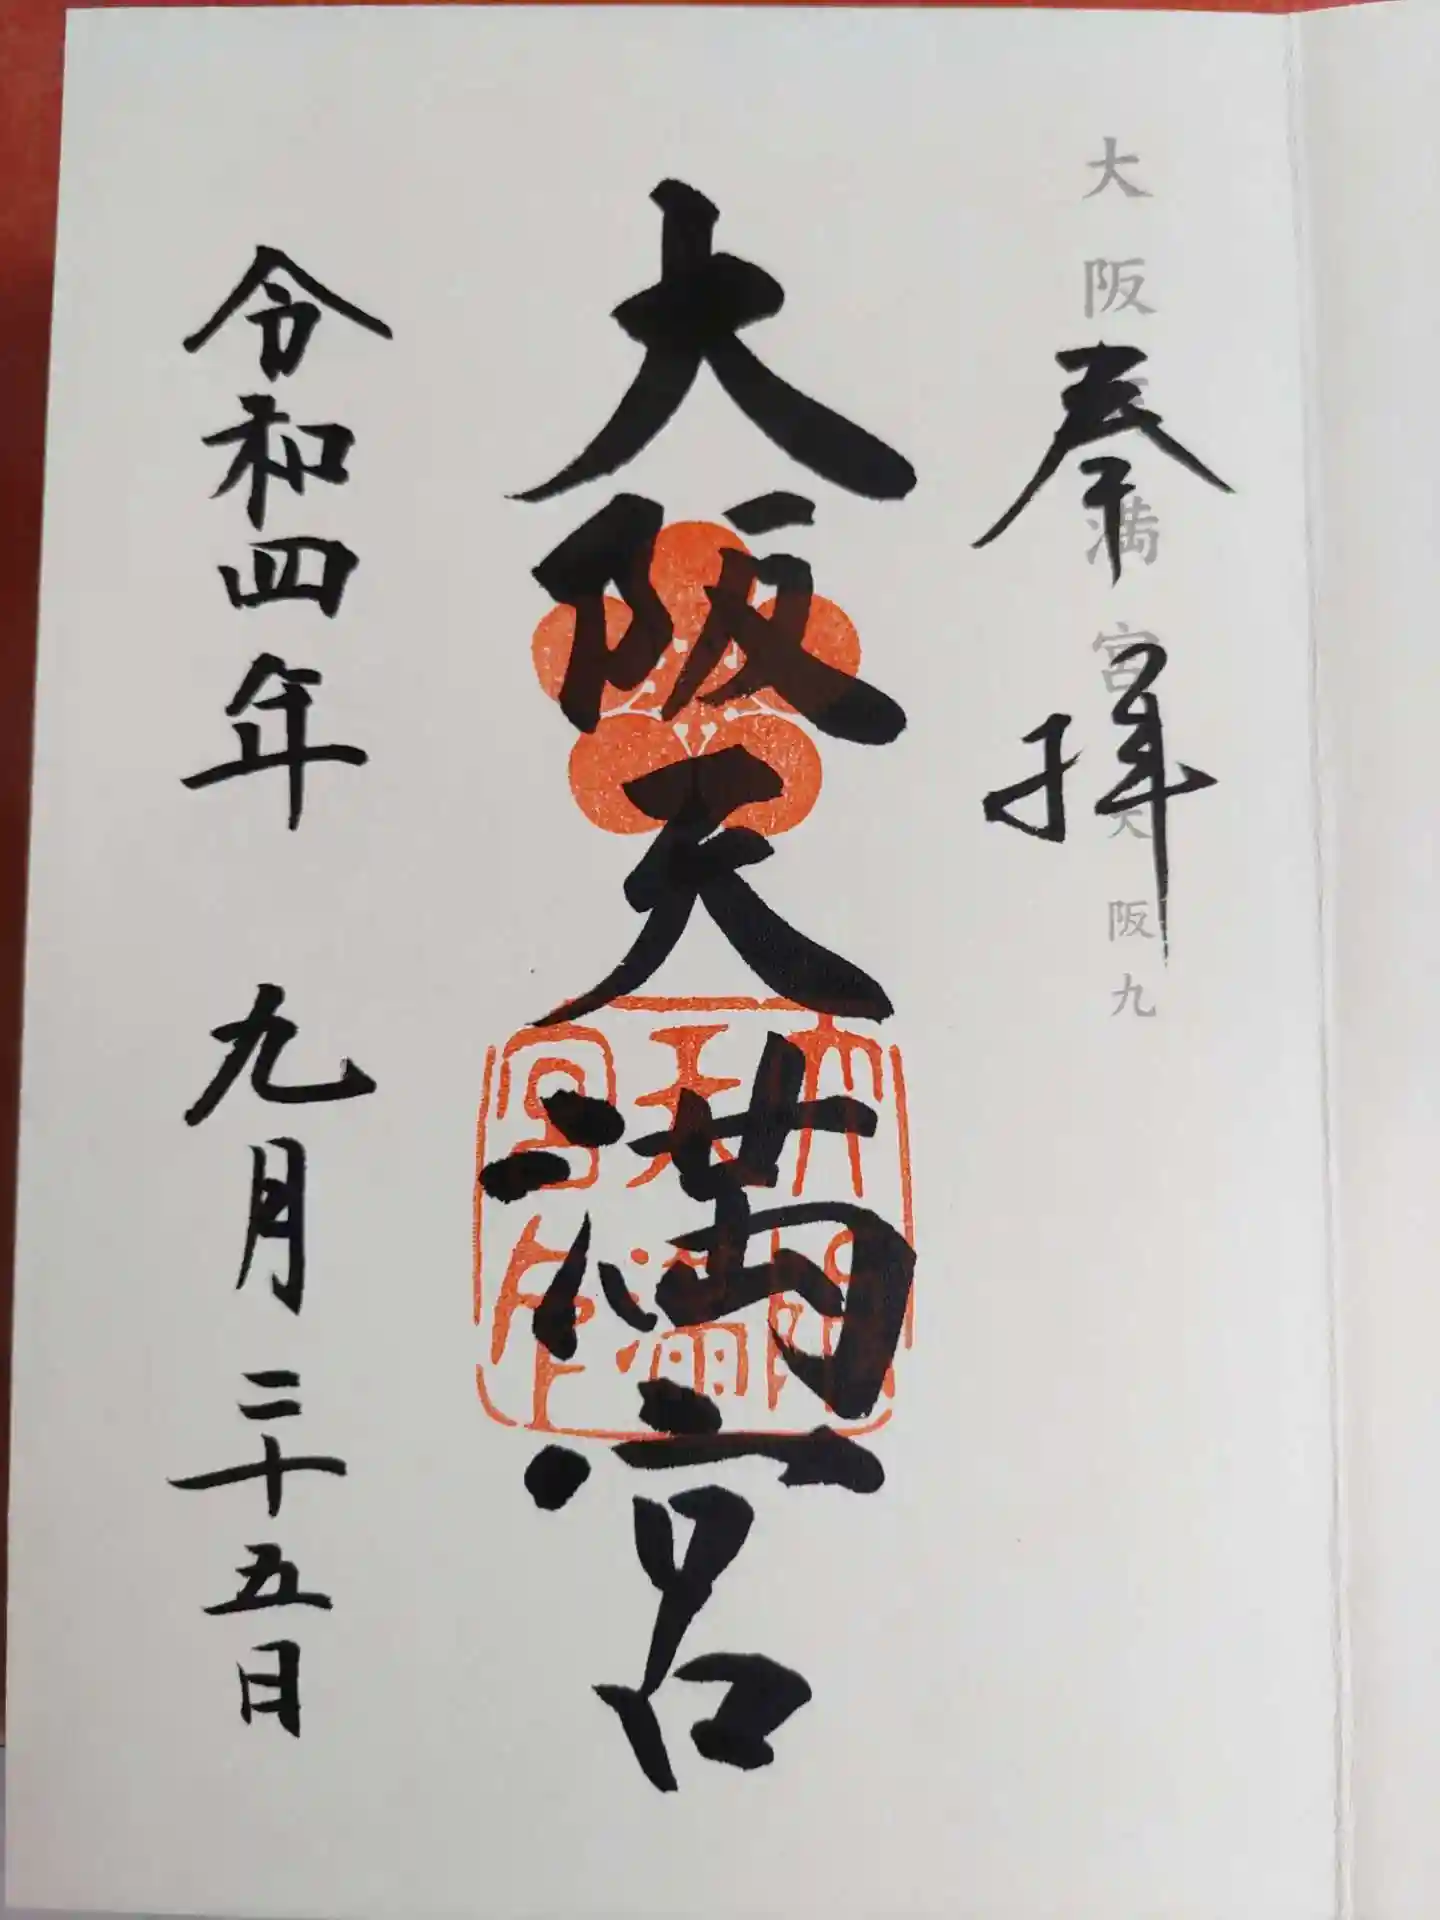 大阪天満宮
大阪九
奉拝
大阪天満宮
令和四年 九月二十五日